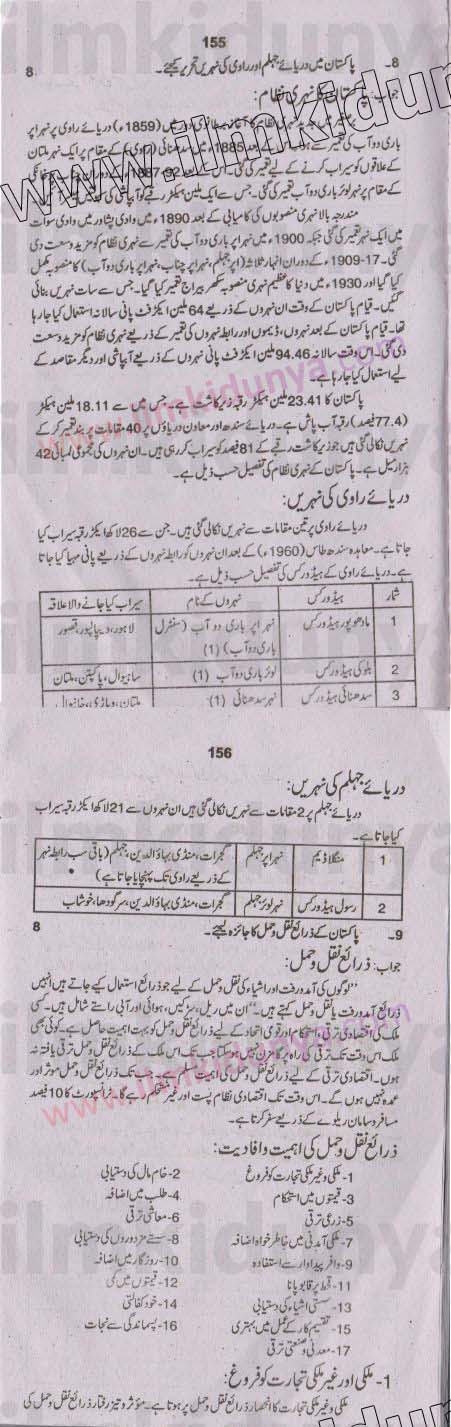 155
8- پاکستان میں دریائے جہلم اور راوی کی نہریں تحریر کیجئے۔ 8
جواب: پاکستان کا نہری نظام:
دور میں (1859ء) دریائے راوی پر نہر اپر
باری دو آب کی تعمیر سے 1885ء میں سدھنائی کے مقام پر ایک نہر ملتان
کے علاقوں کو سیراب کرنے کے لیے تعمیر کی گئی۔
کے مقام پر نہر لوئر باری دو آب تعمیر کی گئی۔ جس سے ایک ملین ہیکٹر رقبے کو آبپاشی کی
مندرجہ بالا نہری منصوبوں کی کامیابی کے بعد 1890ء میں وادی پشاور میں وادی سوات
میں ایک نہر تعمیر کی گئی جبکہ 1900ء میں نہر اپر باری دو آب کی تعمیر سے نہری نظام کو مزید وسعت دی
گئی۔ 17-1909ء کے دوران انہار ثلاثہ (اپر جہلم، نہر اپر چناب، نہر اپر باری دو آب) کا منصوبہ مکمل
کیا گیا اور 1930ء میں دنیا کا عظیم نہری منصوبہ سکھر بیراج تعمیر کیا گیا۔ جس سے سات نہریں بنائی
گئیں۔ قیام پاکستان کے وقت ان نہروں کے ذریعے 64 ملین ایکڑ فٹ پانی سالانہ استعمال کیا جا رہا
تھا۔ قیام پاکستان کے بعد نہروں، ڈیموں اور رابطہ نہروں کی تعمیر کے ذریعے نہری نظام کو مزید وسعت
دی گئی۔ اس وقت سالانہ 94.46 ملین ایکڑ فٹ پانی نہروں کے ذریعے آبپاشی اور دیگر مقاصد کے
لیے استعمال کیا جا رہا ہے۔
پاکستان کا 23.41 ملین ہیکٹر رقبہ زیر کاشت ہے۔ جس میں سے 18.11 ملین ہیکٹر
(77.4 فیصد) رقبہ آب پاش ہے۔ دریائے سندھ اور معاون دریاؤں پر 40 مقامات پر بند تعمیر کر کے
نہریں نکالی گئی ہیں جو زیر کاشت رقبے کے 81 فیصد کو سیراب کر رہی ہیں۔ ان نہروں کی مجموعی لمبائی 42
ہزار میل ہے۔ پاکستان کے نہری نظام کی تفصیل حسب ذیل ہے۔
دریائے راوی کی نہریں:
دریائے راوی پر تین مقامات سے نہریں نکالی گئی ہیں۔ جن سے 26 لاکھ ایکڑ رقبہ سیراب کیا
جاتا ہے۔ معاہدہ سندھ طاس (1960ء) کے بعد ان نہروں کو رابطہ نہروں کے ذریعے پانی مہیا کیا جاتا
ہے۔ دریائے راوی کے ہیڈ ورکس کی تفصیل حسب ذیل ہے۔
شمار ہیڈ ورکس نہروں کے نام سیراب کیا جانے والا علاقہ
1 مادھو پور ہیڈ ورکس نہر اپر باری دو آب (سنٹرل لاہور، دیپالپور، قصور
باری دو آب) (1)
2 بلوکی ہیڈ ورکس لوئر باری دو آب (1) ساہیوال، پاکپتن، ملتان
3 سدھنائی ہیڈ ورکس نہر سدھنائی (1) ملتان، وہاڑی، خانیوال
156
دریائے جہلم کی نہریں:
دریائے جہلم پر 2 مقامات سے نہریں نکالی گئی ہیں ان نہروں سے 21 لاکھ ایکڑ رقبہ سیراب
کیا جاتا ہے۔
1 منگلا ڈیم نہر اپر جہلم گجرات، منڈی بہاؤالدین، جہلم (باقی سب رابطہ نہر
کے ذریعے راوی تک پہنچایا جاتا ہے)
2 رسول ہیڈ ورکس نہر لوئر جہلم گجرات، منڈی بہاؤالدین، سرگودھا، خوشاب
9- پاکستان کے ذرائع نقل و حمل کا جائزہ لیجئے۔ 8
جواب: ذرائع نقل و حمل:
”لوگوں کی آمد و رفت اور اشیاء کی نقل و حمل کے لیے جو ذرائع استعمال کیے جاتے ہیں انہیں
ذرائع آمد و رفت یا نقل و حمل کہتے ہیں۔“ ان میں ریل، سڑکیں، ہوائی اور آبی راستے شامل ہیں۔ کسی
ملک کی اقتصادی ترقی، استحکام اور قومی اتحاد کے لیے ذرائع نقل و حمل کو بہت اہمیت حاصل ہے۔ کوئی بھی
ملک اس وقت تک ترقی کی راہ پر گامزن نہیں ہو سکتا جب تک اس ملک کے ذرائع نقل و حمل ترقی یافتہ نہ
ہوں۔ اقتصادی ترقی کے لیے ذرائع نقل و حمل کی اہمیت مسلم ہے۔ جب تک ذرائع نقل و حمل موثر اور
عمدہ نہیں ہوں گے۔ اس وقت تک اقتصادی نظام پست اور غیر مستحکم رہے گا۔ ٹرانسپورٹ کا 10 فیصد
مسافر و سامان ریلوے کے ذریعے سفر کرتا ہے۔
ذرائع نقل و حمل کی اہمیت و افادیت:
1- ملکی و غیر ملکی تجارت کو فروغ 2- خام مال کی دستیابی
3- قیمتوں میں استحکام 4- طلب میں اضافہ
5- زرعی ترقی 6- معاشی ترقی
7- ملکی آمدنی میں خاطر خواہ اضافہ 8- سستے مزدوروں کی دستیابی
9- وافر پیداوار سے استفادہ 10- روزگار میں اضافہ
11- قحط پر قابو پانا 12- قیمتوں میں کمی
13- سستی اشیاء کی دستیابی 14- خود کفالتی
15- تقسیم کار کے عمل میں بہتری 16- پسماندگی سے نجات
17- معدنی و صنعتی ترقی
1- ملکی اور غیر ملکی تجارت کو فروغ:
ملکی و غیر ملکی تجارت کا انحصار ذرائع نقل و حمل پر ہوتا ہے۔ مؤثر و تیز رفتار ذرائع نقل و حمل کی